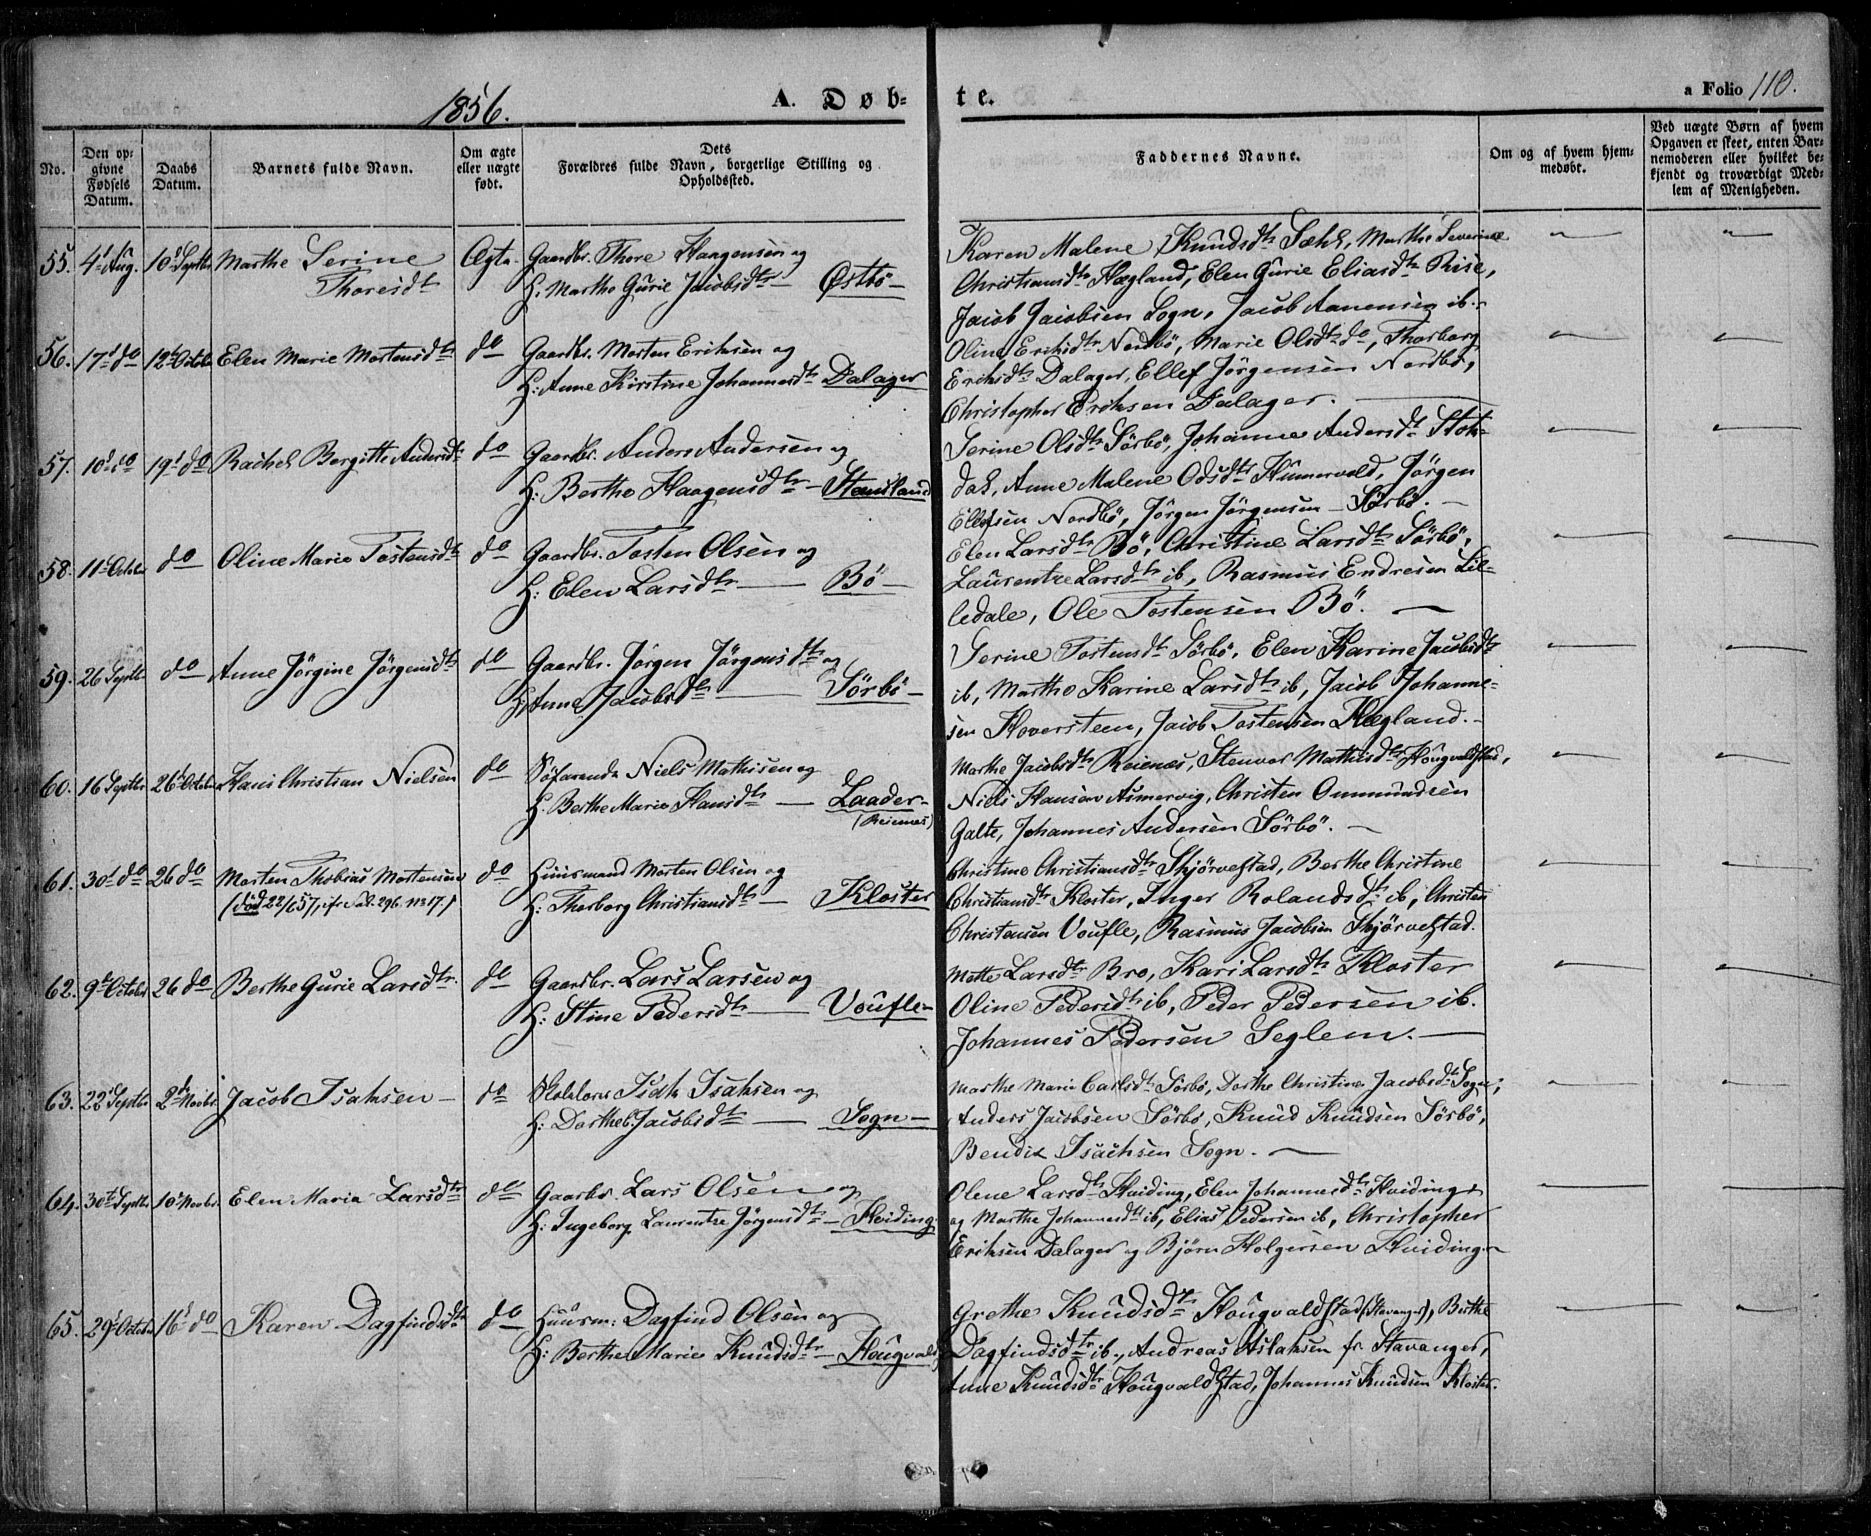 1856.
A. Døb-
te.
a Folio 110.
No.
Den op-
givne
Fødsels
Datum.
Daabs
Datum.
Barnets fulde Navn.
Om ægte
eller uægte
født.
Dets
Forældres fulde Navn, borgerlige Stilling og
Opholdssted.
Faddernes Navne.
Om og af hvem hjem-
medøbt.
Ved uægte Børn af hvem
Opgaven er skeet, enten Bar-
nemoderen eller hvilket be-
kjendt og troværdigt Med-
lem af Menigheden.
55. 4d Aug. 10d Septbr Marthe Serine
Thoresdtr
Ægte Gaardbr. Thore Haagensen og
H: Martha Gurie Jacobsdtr — Østbö —
Karen Malene Knudsdtr Sæhl, Marthe Severine
Christiansdtr Hægland, Elen Gurie Eliasdtr Rise,
Jacob Jacobsen Sogn, Jacob Aanensen ib.
56. 17d do 12d Octobr Elen Marie Mortensdtr do Gaardbr. Morten Eriksen og
H: Anne Kirstine Johannesdtr Dalager
Oline Eriksdtr Nordbö, Marie Olsdtr do, Thorborg
Eriksdtr Dalager, Ellef Jörgensen Nordbö,
Christopher Eriksen Dalager.
57. 10d do 19d do Rachel Bergitte Andersdtr do Gaardbr. Anders Andersen og
H: Berthe Haagensdtr — Stensland
Serine Olsdtr Sörbö, Johanne Andersdtr Stok-
dal, Anne Malene Odsdtr Hummervold, Jörgen
Ellefsen Nordbö, Jörgen Jörgensen — Sörbö. —
58. 11d Octobr do Oline Marie Tostensdtr do Gaardbr. Tosten Olsen og
H: Elen Larsdtr — Bö —
Elen Larsdtr Bö, Christine Larsdtr Sörbö,
Laurentze Larsdtr ib, Rasmus Endresen Lil-
ledale, Ole Tostensen Bö. —
59. 26 Septbr do Anne Jörgine Jörgensdtr do Gaardbr. Jörgen Jörgensdtr og
H: Anne Jacobsdtr — Sörbö —
Serine Tostensdtr Sörbö, Elen Karine Jacobsdtr
ib, Martha Karine Larsdtr ib, Jacob Johanne-
sen Hoversteen, Jacob Tostensen Hægland. —
60. 16 Septbr 26d Octobr Hans Christian Nielsen do Söfarende Niels Mathisen og
H. Berthe Marie Hansdtr — Laader-
(Reienes)
Marthe Jacobsdtr Reienæs, Stenvor Mathisdtr Hougvaldstad,
Niels Hansen Asmervig, Christen Ommundsen
Galte, Johannes Andersen Sörbö. —
61. 30d do 26 do Morten Thobias Mortensen
(död 22/6 57, cfr Fol. 296. No 17.)
do Huusmand Morten Olsen og
H: Thorborg Christiansdtr — Kloster
Christine Christiansdtr Skjörvestad, Berthe Christine
Christiansdtr Kloster, Inger Rolandsdtr ib, Christen
Christensen Voufle, Rasmus Jacobsen Skjörvestad.
62. 9d October 26 do Berthe Gurie Larsdtr. do Gaardbr. Lars Larsen og
H: Stine Pedersdtr — Voufle —
Mette Larsdtr Bro, Kari Larsdtr Kloster
Oline Pedersdtr ib, Peder Pedersen ib.
Johannes Pedersen Seglem. —
63. 22d Septbr 2d Novbr. Jacob Isaksen — do Skolelærer Isak Isaksen og
H: Dorthe Jacobsdtr — Sogn —
Marthe Marie Carlsdtr Sörbö, Dorthe Christine Jacobsdtr Sogn,
Anders Jacobsen Sörbö, Knud Knudsen Sörbö,
Bendix Isachsen Sogn. —
64. 30te Septbr 10d Novbr. Elen Maria Larsdtr do Gaardbr. Lars Olsen og
H: Ingeborg Laurentze Jörgensdtr — Hviding
Olene Larsdtr Hviding, Elen Johannesdtr Hviding
og Marthe Johannesdtr ib, Elias Pedersen ib, Christopher
Eriksen Dalager og Björn Holgersen Hviding —
65. 29d Octobr 16d do Karen Dagfindsdtr do Huusm: Dagfind Olsen og
H: Berthe Marie Knudsdtr — Hougvald
Grethe Knudsdtr Hougvaldstad (Stavanger), Berthe
Dagfindsdtr ib., Andreas Aslaksen fr Stavanger,
Anne Knudsdtr Hougvaldstad, Johannes Knudsen Kloster.